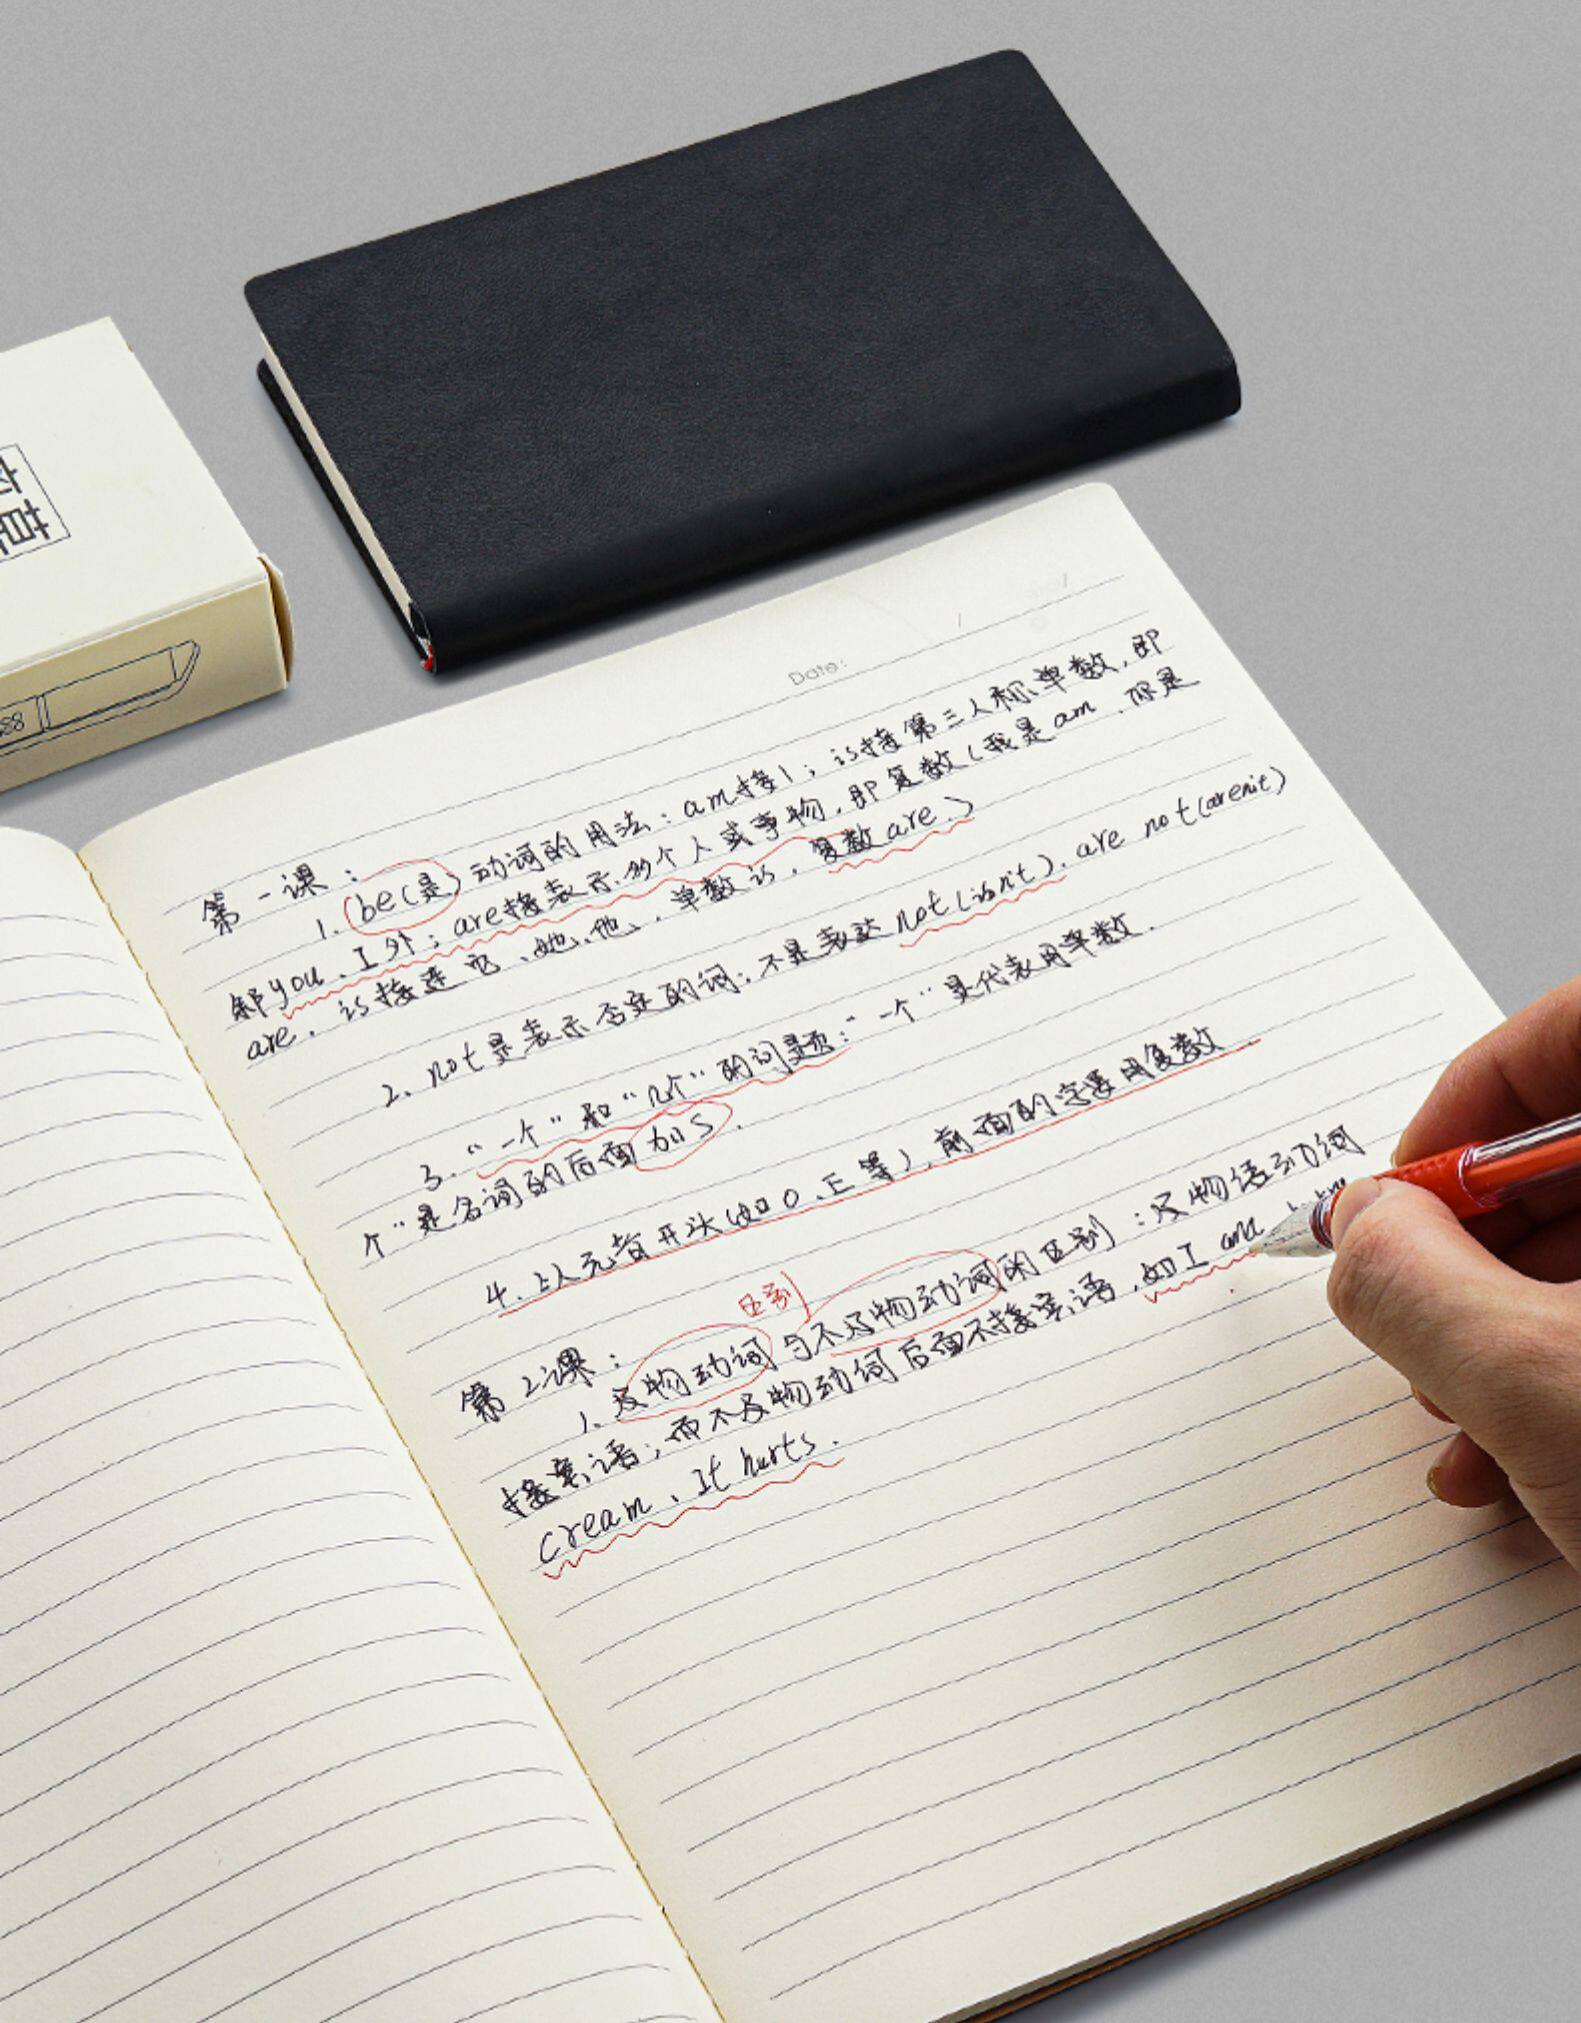 Date:
第一课:
1. be(是)动词的用法:am接I;is接第三人称单数,即
除you、I外;are接表示多个人或事物,即复数(我是am,你是
are,is接连它、她、他,单数is,复数are。)
2. not是表示否定的词:不是表达 not(isn't). are not(aren't)
3. "一个"和"几个"的问题:"一个"是代表用单数.
个"是名词的后面加s.
4. 以元音开头(如O、E等),前面的字要用复数
区别
第2课:
1. 及物动词与不及物动词的区别:及物语动词
接宾语;而不及物动词后面不接宾语,如I
cream、It hurts.